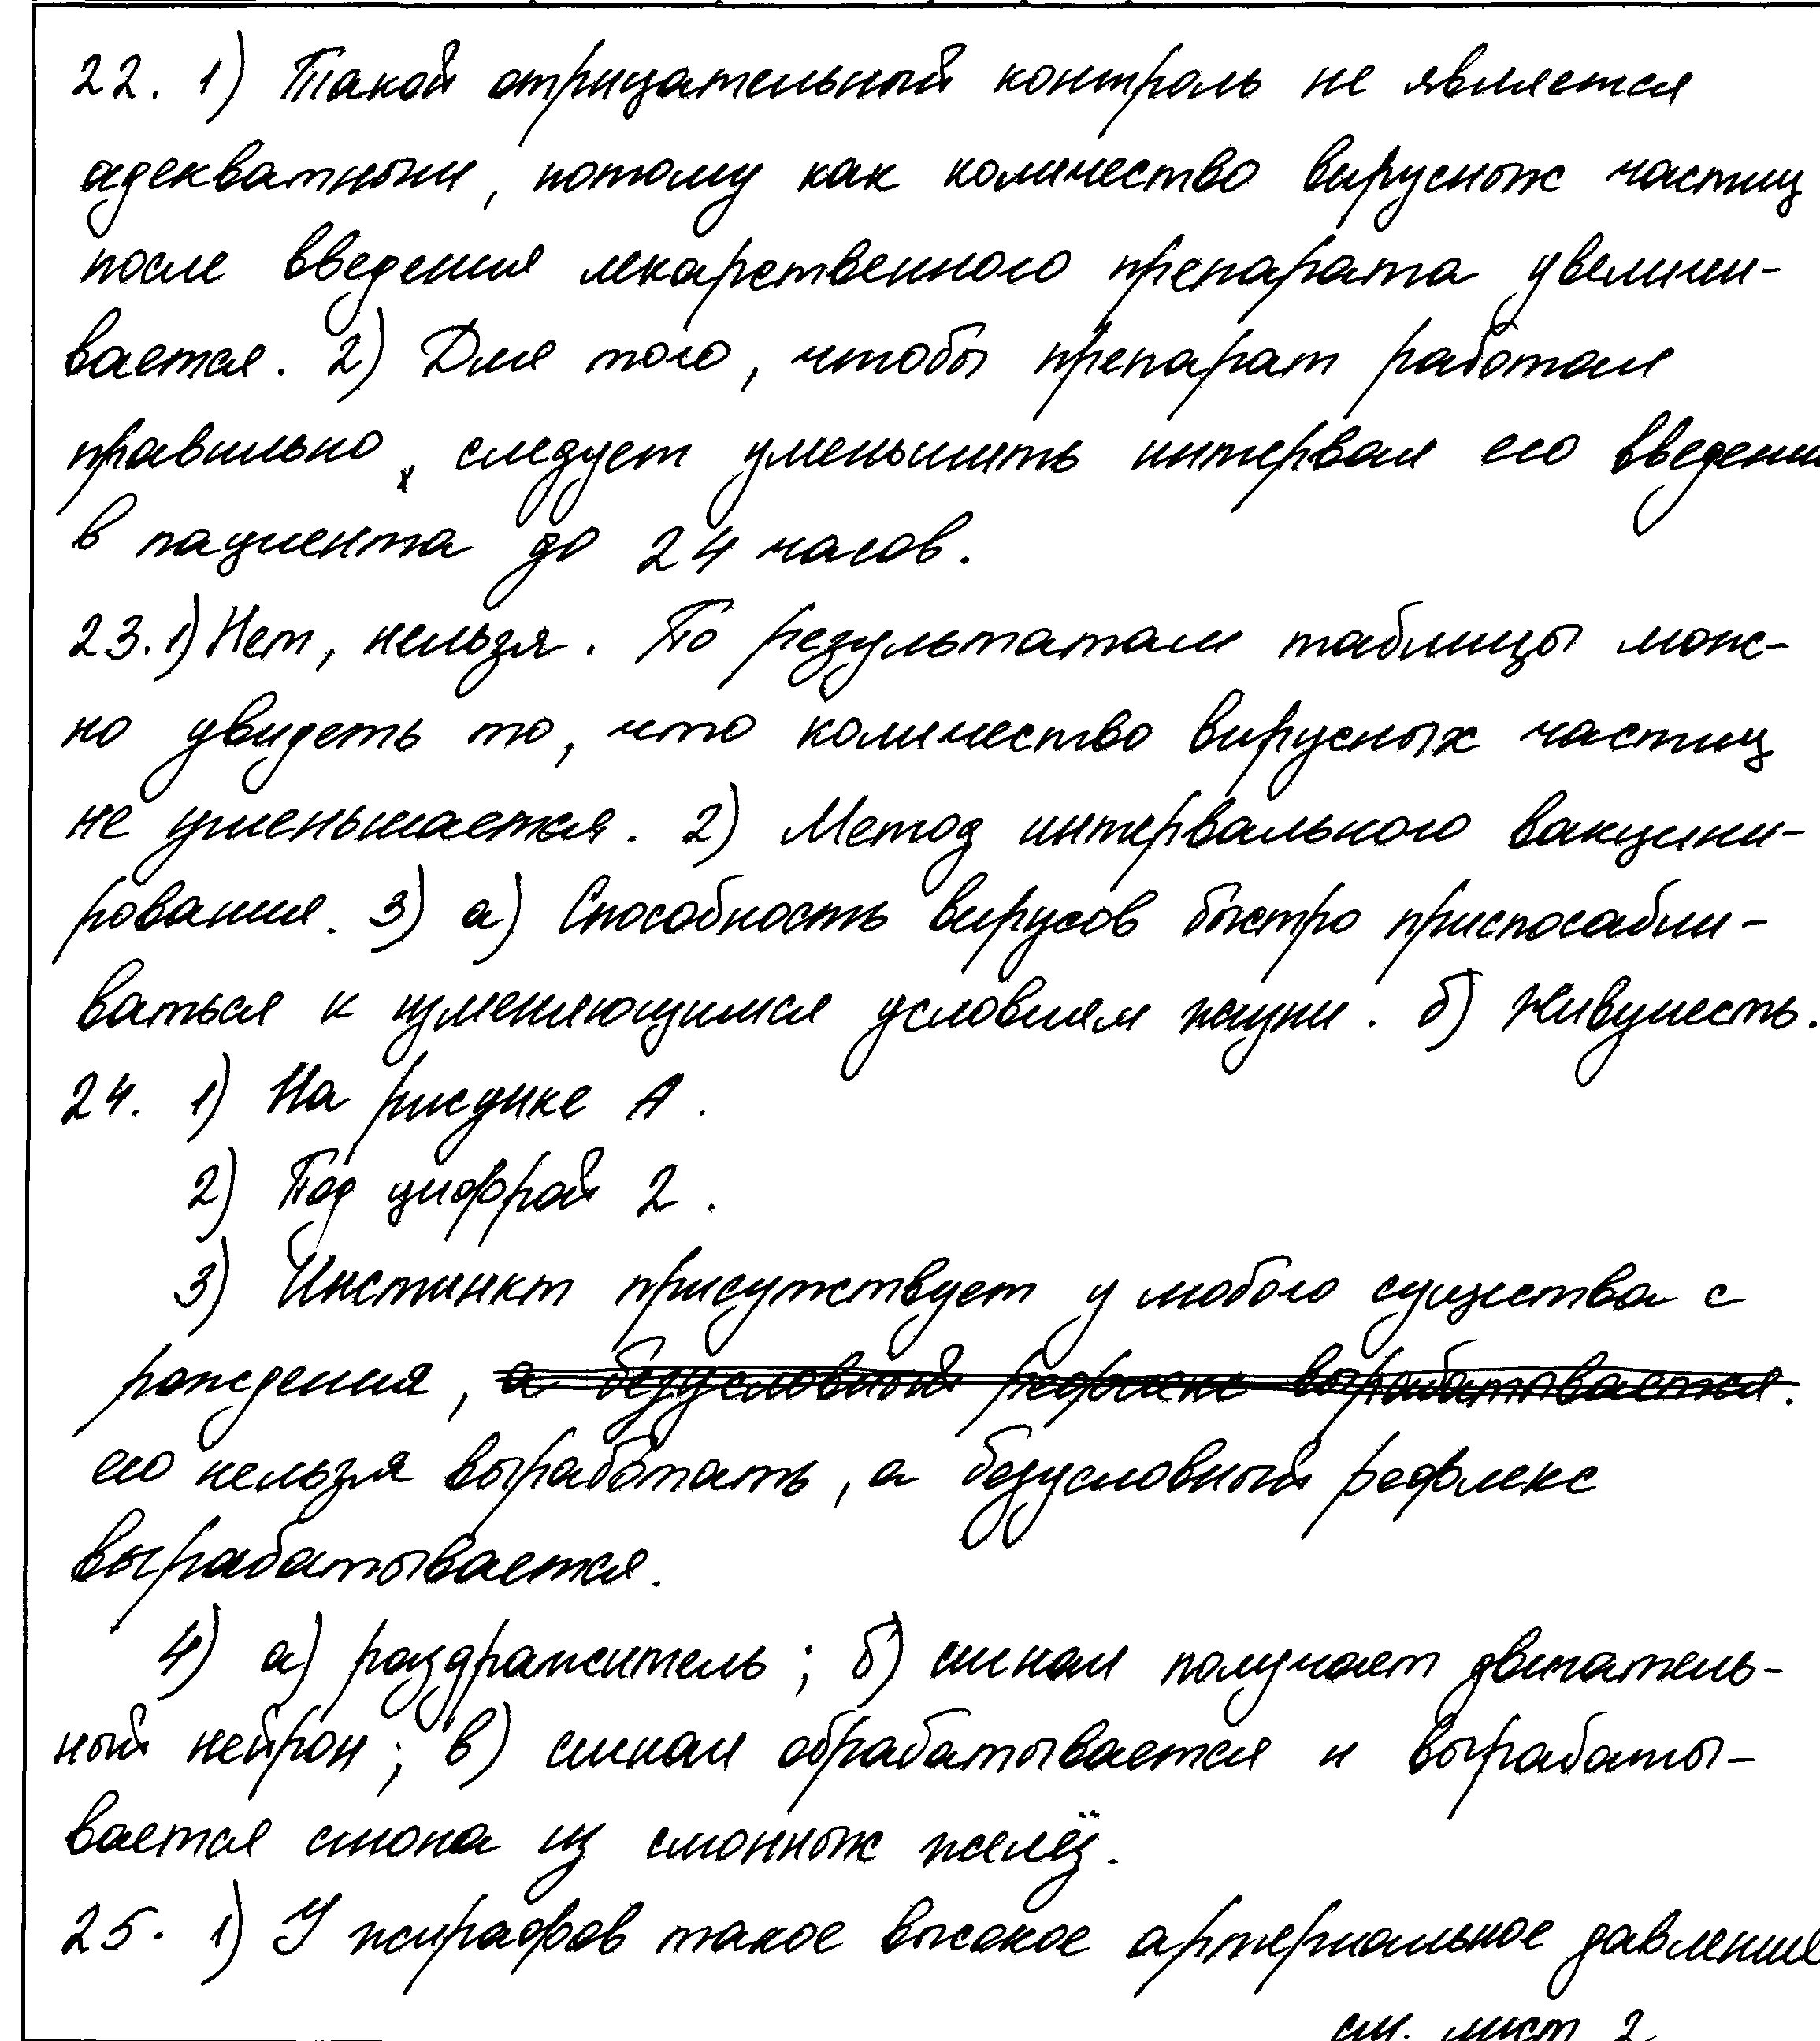 22. 1) Такой отрицательный контроль не является
адекватным, потому как количество вирусных частиц
после введения лекарственного препарата увеличи-
вается. 2) Для того, чтобы препарат работал
правильно, следует уменьшить интервал его введени
в пациента до 24 часов.
23. 1) Нет, нельзя. По результатам таблицы мож-
но увидеть то, что количество вирусных частиц
не уменьшается. 2) Метод интервального вакцини-
рования. 3) а) Способность вирусов быстро приспосабли-
ваться к изменяющимся условиям жизни. б) Живучесть.
24. 1) На рисунке А.
2) Под цифрой 2.
3) Инстинкт присутствует у любого существа с
рождения, а безусловный рефлекс вырабатывается.
его нельзя выработать, а безусловный рефлекс
вырабатывается.
4) а) раздражитель; б) сигнал получает двигатель-
ный нейрон; в) сигнал обрабатывается и вырабаты-
вается слюна из слюнных желёз.
25. 1) У жирафов такое высокое артериальное давление
см. лист 2